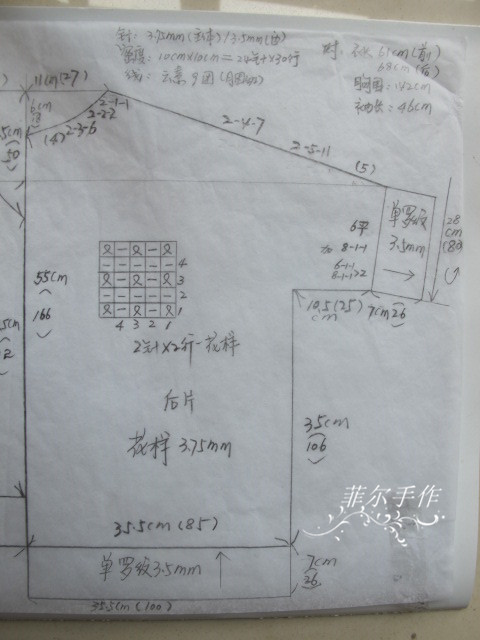 针: 3.75mm(衣身)/3.5mm(边)
密度: 10cm×10cm=24针×30行
线: 云慕9团(
衣长 61cm(前)
68cm(后)
胸围: 142cm
袖长: 46cm
11cm(27)
6cm
18
2-1-1
2-2-2
2-3-6
(4)
2-4-7
2-5-11
(5)
5cm
(50)
6平
加 8-1-1
6-1-1
8-1-1
单罗纹
3.5mm
28
cm
(80)
10.5(25)
cm
7cm(26)
55cm
166
4
3
2
1
4 3 2 1
2针×2行一花样
后片
花样 3.75mm
35cm
106
5cm
菲尔手作
35.5cm(85)
单罗纹3.5mm
7cm
26
35.5cm(100)